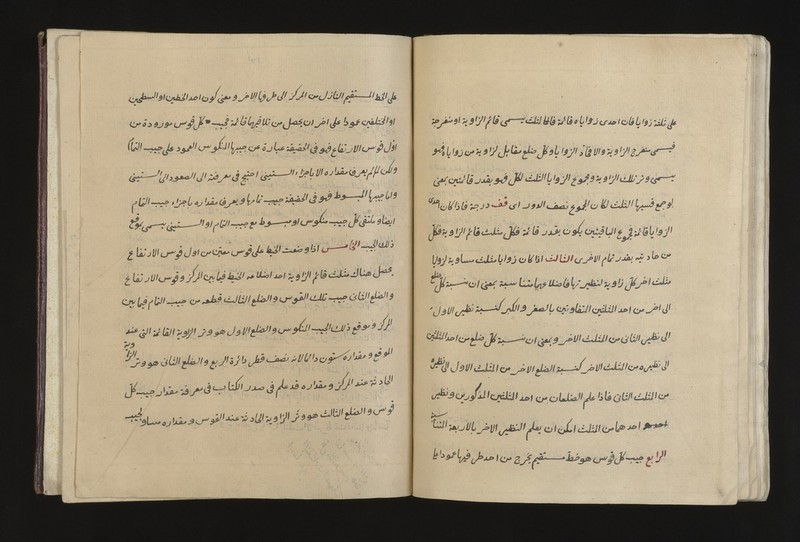 على ثلثة زوايا فان احدى زواياه قائمة فالمثلث يسمى قائم الزاوية او منفرجة
فيسمى منفرج الزاوية والا فحاد الزوايا وكل ضلع مقابل لزاوية من زواياه فهو
يسمى وتر تلك الزاوية ومجموع الزوايا الثلث لكل فهو بقدر قائمتين بمعنى
لو جمع قسيها الثلث لكان المجموع نصف الدور اى قف درجة فاذا كان احدى
الزوايا قائمة فمجموع الباقيتين يكون بقدر قائمة فكل مثلث قائم الزاوية فكل
من حادتيه بقدر تمام الاخرى الثالث اذا كان زوايا مثلث مساوية لزوايا
مثلث اخر كل زاوية لنظيرتها فاضلاعهما متناسبة بمعنى ان نسبة كل ضلع
الى اخر من احد المثلثين المتفاوتين بالصغر والكبر كنسبة نظير الاول
الى نظير الثانى من المثلث الاخر وبمعنى ان نسبة كل ضلع من احد المثلثين
الى نظيره من المثلث الاخر كنسبة الضلع الاخر من المثلث الاول الى نظيره
من المثلث الثانى فاذا علم الضلعان من احد المثلثين المذكورين ونظير
احدهما من المثلث امكن ان يعلم النظير الاخر بالاربعة المتناسبة
الرابع جيب كل قوس هو خط مستقيم يخرج من احد طرفيها عمودا
على الخط المستقيم النازل من المركز الى طرفها الاخر ومعنى كون احد الخطين او السطحين
او المختلفين عمودا على اخر ان يحصل من تلاقيهما قائمة فجيب كل قوس مورودة من
اول قوس الارتفاع فهو فى الحقيقة عبارة من جيبها المنكوس العمود على جيب التمام
ولكن لما لم يعرف مقداره الا باجزاء الستينى احتيج فى معرفته الى الصعود الى الستينى
واما جيبها المبسوط فهو فى الحقيقة جيب تمامها ويعرف مقداره باجزاء جيب التمام
ايضا وملتقى كل جيب منكوس او مبسوط مع جيب التمام او الستينى يسمى موقع
ذلك الجيب الخامس اذا وضعت الخيط على قوس معين من اول قوس الارتفاع
يحصل هناك مثلث قائم الزاوية احد اضلاعه الخيط فيما بين المركز وقوس الارتفاع
والضلع الثانى جيب تلك القوس والضلع الثالث قطعة من جيب التمام فيما بين
المركز وموقع ذلك الجيب المنكوس والضلع الاول هو وتر الزاوية القائمة التى عند
الموقع ومقداره ستون دائما لانه نصف قطر دائرة الربع والضلع الثانى هو وتر الزاوية
الحادثة عند المركز ومقداره قد علم فى صدر الكتاب فى معرفة مقدار جيب كل
قوس والضلع الثالث هو وتر الزاوية الحادثة عند القوس ومقداره مساو لجيب